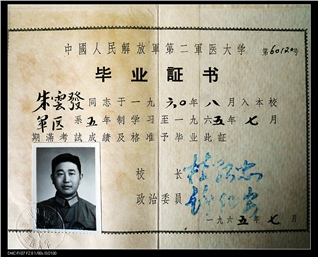 中國人民解放軍第二軍医大学
第60120号
毕业証书
朱雲發同志于一九六〇年八月入本校
軍医系五年制学习至一九六五年七月
期滿考試成績及格准予毕业此証
校長
政治委員
一九六五年七月